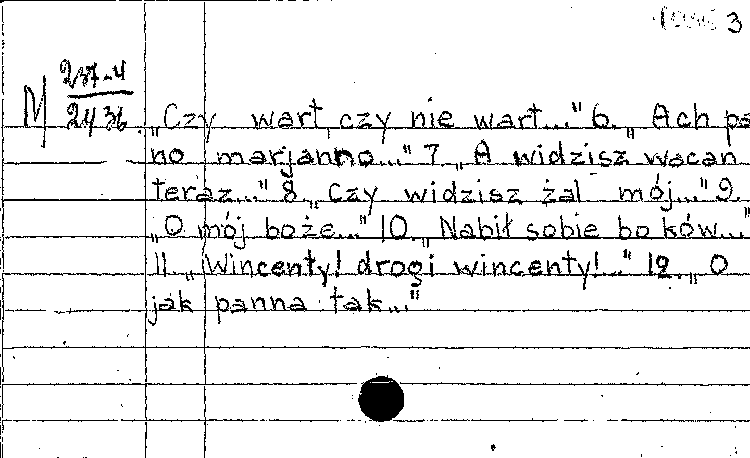 3
M 237-4
2436
„Czy wart czy nie wart..." 6. „Ach pa
no marjanno..." 7 „A widzisz wacan
teraz..." 8. „Czy widzisz żal mój..." 9.
„O mój boże..." 10. „Nabił sobie boków..."
11. „Wincenty! drogi wincenty!..." 12. „O
jak panna tak..."